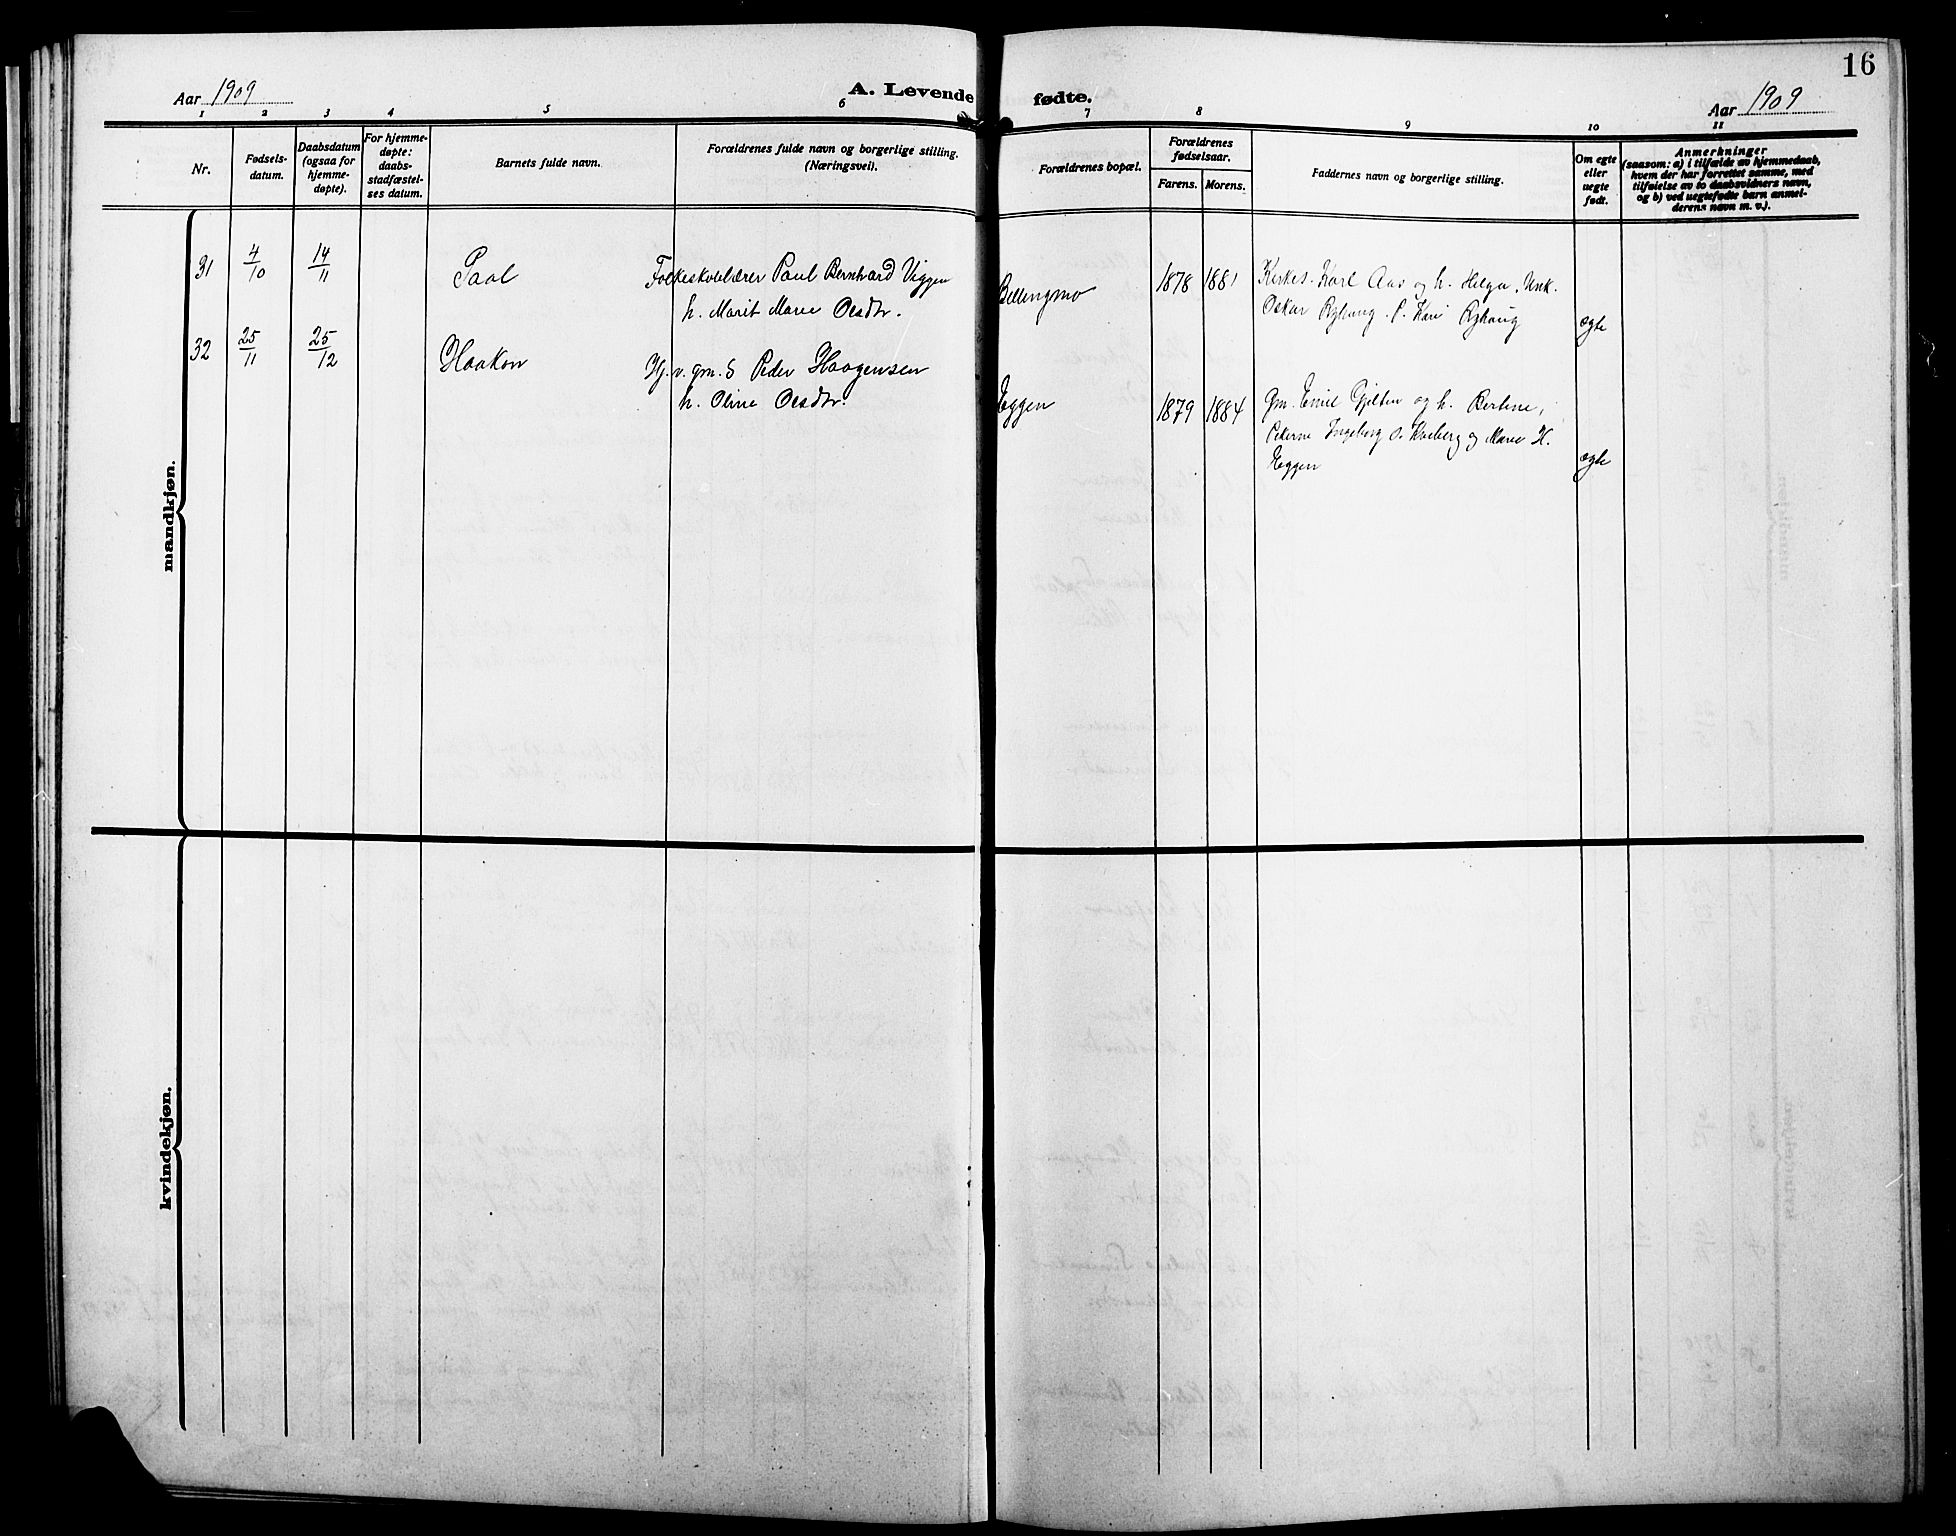 16
Aar 1909
A. Levende fødte.
Aar 1909
1 2 3 4 5 6 7 8 9 10 11
Nr.
Fødsels-
datum.
Daabsdatum
(ogsaa for
hjemme-
døpte).
For hjemme-
døpte:
daabs-
stadfæstel-
ses datum.
Barnets fulde navn.
Forældrenes fulde navn og borgerlige stilling.
(Næringsvei).
Forældrenes bopæl.
Forældrenes
fødselsaar.
Farens. Morens.
Faddernes navn og borgerlige stilling.
Om egte
eller
uegte
født.
Anmerkninger
(saasom: a) i tilfælde av hjemmedaab,
hvem der har forrettet samme, med
tilføielse av to daabsvidners navn,
og b) ved uegtefødte barn anmel-
derens navn m. v.).
mandkjøn.
31 4/10 14/11 Paal Folkeskolelærer Paul Bernhard Viggen
h. Marit Marie Olsdtr.
Bellingmo 1878 1881 Kirkes. Karl Aas og h. Helga, Unk.
Oskar Ryhaug. P. Kari Ryhaug egte
32 25/11 25/12 Haakon Hj. v. gm. S Peder Haagensen
h. Oline Olsdtr.
Eggen 1879 1884 Gm. Emil Gjelten og h. Bertine,
Pikerne Ingeborg O. Kveberg og Marie H.
Eggen egte
kvindekjøn.